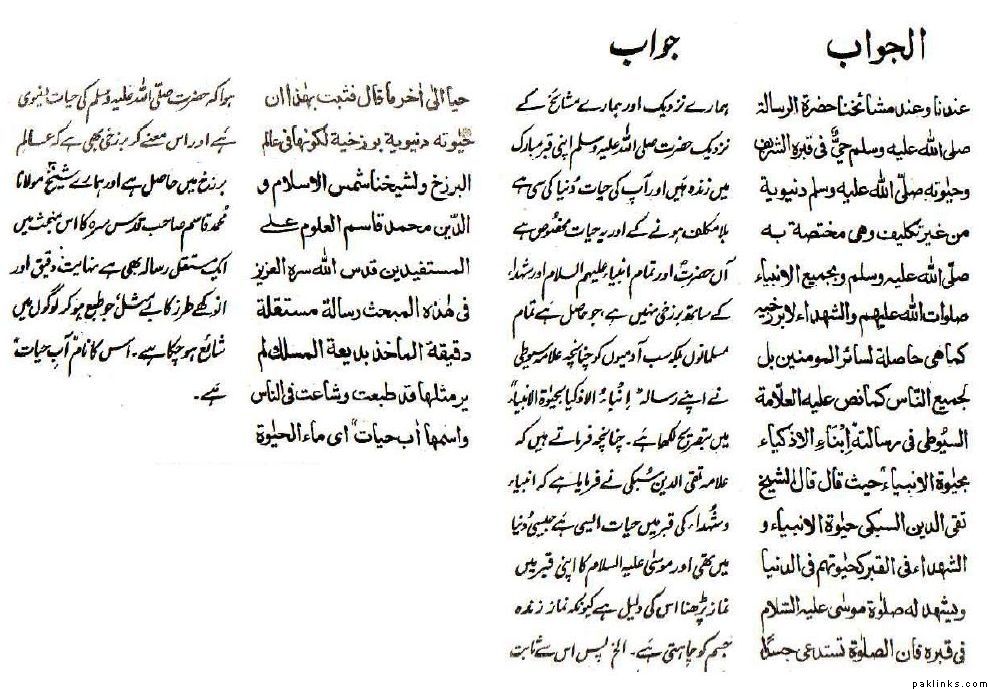 الجواب
عندنا وعند مشائخنا حضرة الرسالة
صلى الله عليه وسلم حيٌّ فى قبره الشريف
وحيٰوته صلّى الله عليه وسلم دنيوية
من غير تكليف وهى مختصة به
صلّى الله عليه وسلم وبجميع الانبياء
صلوات الله عليهم والشهداء لا برزخية
كماهى حاصلة لسائر المومنين بل
لجميع الناس كمانص عليه العلّامة
السيوطى فى رسالته اِنْبَاءِ الاذكياء
بحيٰوة الانبياء حيث قال قال الشيخ
تقى الدين السبكى حيٰوة الانبياء و
الشهداء فى القبر كحيٰوتهم فى الدنيا
ويشهد له صلٰوة موسٰى عليه السّلام
فى قبره فان الصلٰوة تستدعى جسدًا
جواب
ہمارے نزدیک اور ہمارے مشائخ کے
نزدیک حضرت صلی اللہ علیہ وسلم اپنی قبر مبارک
میں زندہ ہیں اور آپ کی حیات دُنیا کی سی ہے
بلا مکلف ہونے کے اور یہ حیات مخصوص ہے
آں حضرتؐ اور تمام انبیاء علیہم السلام اور شہداء
کے ساتھ برزخی نہیں ہے، جو حاصل ہے تمام
مسلمانوں بلکہ سب آدمیوں کو چنانچہ علامہ سیوطی
نے اپنے رسالہ "اِنْبَاءُ الاذکیا بحیٰوۃ الانبیاء"
میں بتصریح لکھا ہے۔ چنانچہ فرماتے ہیں کہ
علامہ تقی الدین سُبکی نے فرمایا ہے کہ انبیاء
و شُہداء کی قبر میں حیات ایسی ہے جیسی دُنیا
میں تھی اور موسٰی علیہ السلام کا اپنی قبر میں
نماز پڑھنا اس کی دلیل ہے کیونکہ نماز زندہ
جسم کو چاہتی ہے۔ الخ پس اس سے ثابت
حيا الىٰ اٰخر ما قال فثبت بهٰذا ان
حيٰوته دنيوية برزخية لكونها فى عالم
البرزخ ولشيخنا شمس الاسلام و
الدّين محمد قاسم العلوم علے
المستفيدين قدس الله سره العزيز
فى هٰذه المبحث رسالة مستقلة
دقيقة المأخذ بديعة المسلك لم
ير مثلها قد طبعت وشاعت فى الناس
واسمها آب حيات" اى ماء الحيٰوة
ہوا کہ حضرت صلّی اللہ علیہ وسلم کی حیات دنیوی
ہے اور اس معنے کر برزخی بھی ہے کہ عالمِ
برزخ میں حاصل ہے اور ہمارے شیخ مولانا
مُحمّد قاسم صاحب قدس سرہ کا اس مبحث میں
ایک مستقل رسالہ بھی ہے نہایت دقیق اور
انوکھے طرز کا بے مثل جو طبع ہو کر لوگوں میں
شائع ہو چکا ہے۔ اس کا نام "آبِ حیات"
ہے۔
paklinks.com